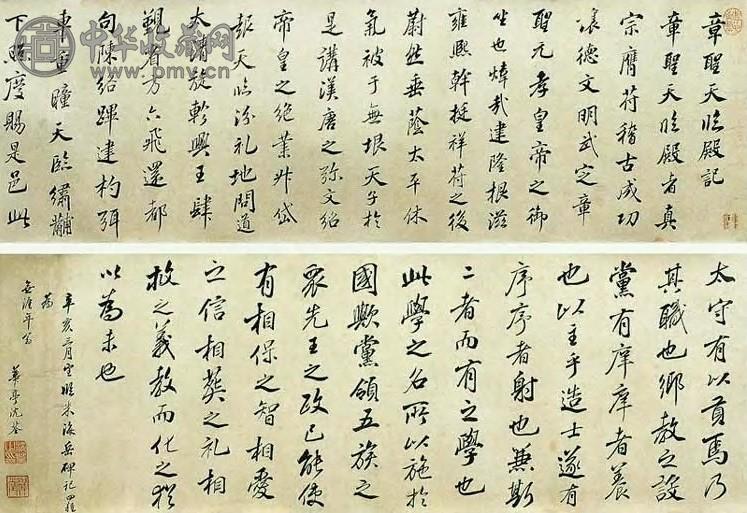 章聖天臨殿記
章聖天臨殿者真
宗膺符稽古成功
讓德文明武定章
聖元孝皇帝之御
坐也煒哉建隆根滋
雍熙幹挺祥符之後
蔚然垂蔭太平休
氣被于無垠天子於
是講漢唐之弥文紹
帝皇之绝業卅岱
報天臨汾礼地問道
太清旋軫興王肆
朔省方六飛還都
向陳紹蹕建杓弭
車重瞳天臨繡黼
下臨慶賜是邑此
中华收藏网
www.pmyc.cn
太守有以貢焉乃
其職也鄉教之設
黨有庠庠者養
也以主乎造士遂有
序序者射也兼斯
二者而有之學也
此學之名所以施於
國歟黨領五族之
衆先王之政已能使
有相保之智相愛
之信相葬之礼相
救之義教而化之猶
以為未也
辛亥三月望臨米海岳碑記四種
為
年翁
華亭沈荃